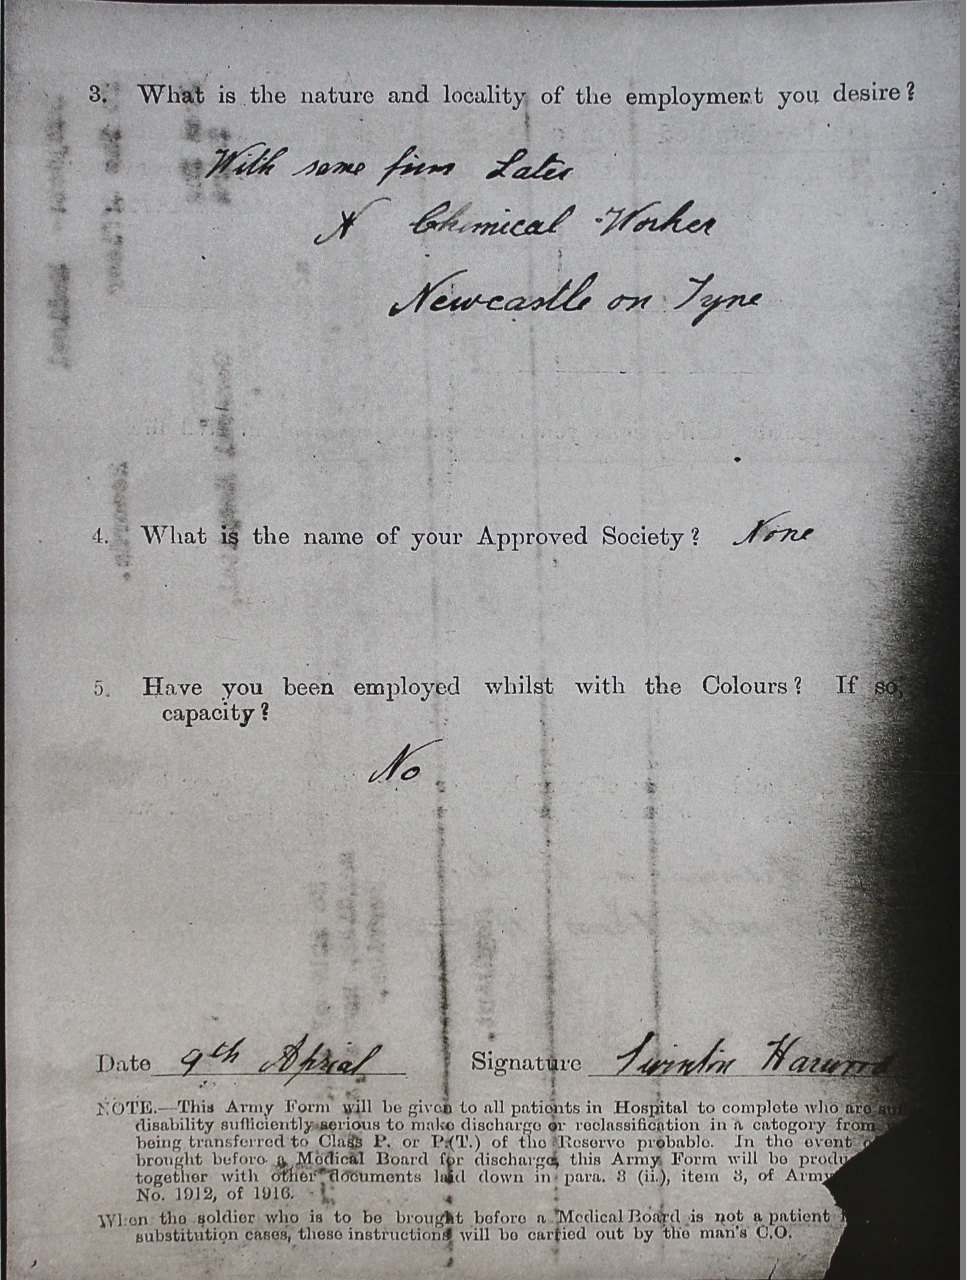 3. What is the nature and locality of the employment you desire?
With same firm Later
Chemical Worker
Newcastle on Tyne
4. What is the name of your Approved Society? None
5. Have you been employed whilst with the Colours? If so,
capacity?
No
Date 9th Aprial Signature Swinton Harwood
NOTE.—This Army Form will be given to all patients in Hospital to complete who are
disability sufficiently serious to make discharge or reclassification in a category from
being transferred to Class P. or P.(T.) of the Reserve probable. In the event
brought before a Medical Board for discharge, this Army Form will be
together with other documents laid down in para. 3 (ii.), item 3, of Army
No. 1912, of 1916.
When the soldier who is to be brought before a Medical Board is not a patient
substitution cases, these instructions will be carried out by the man's C.O.